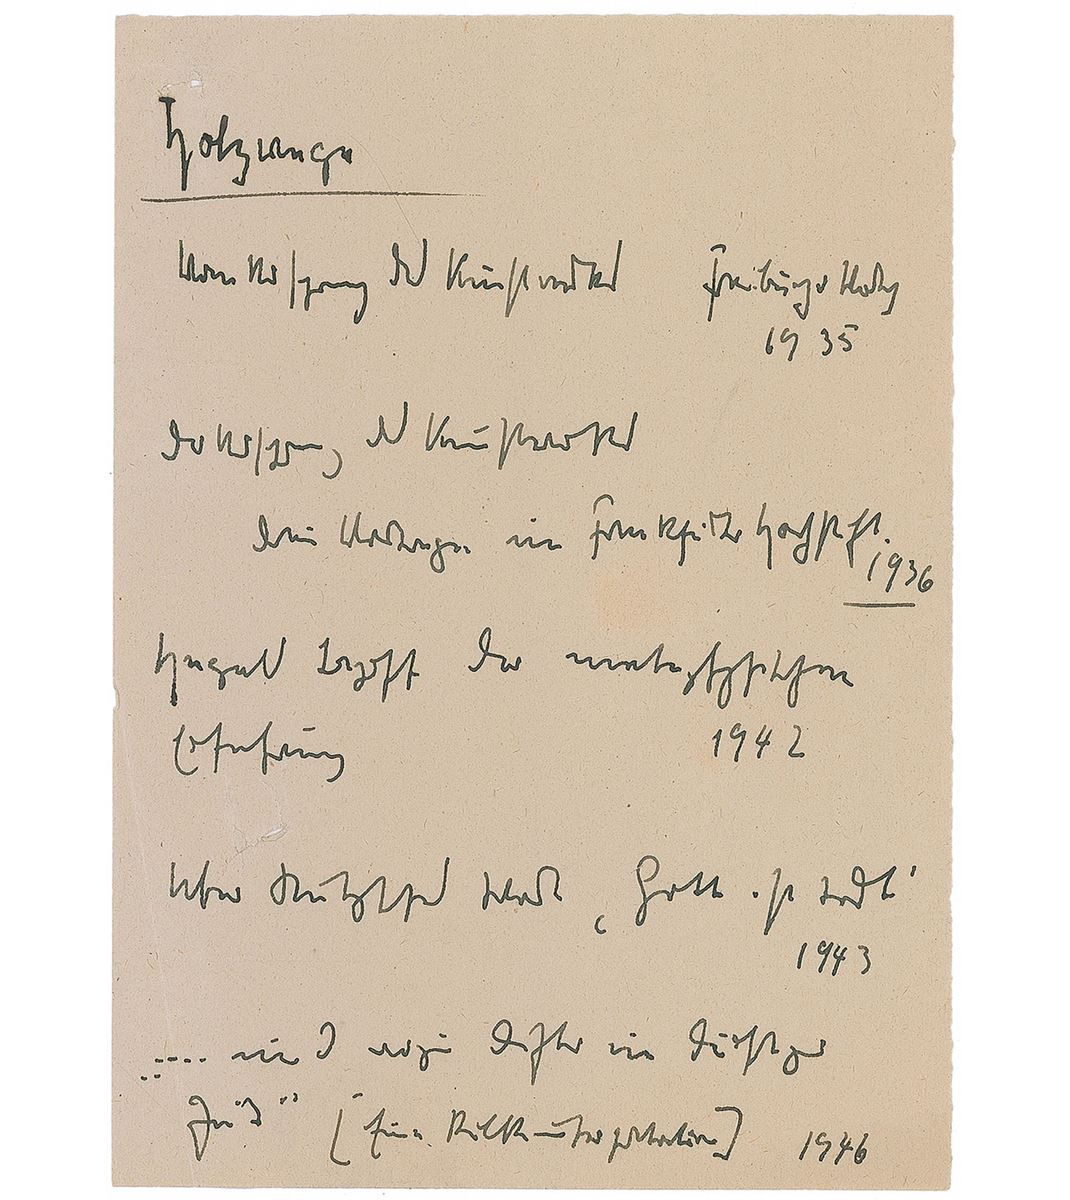 Holzwege
Vom Ursprung des Kunstwerkes Freiburger Vortrag
1935
Der Ursprung des Kunstwerkes
drei Vorträge im Frankfurter Hochstift.
1936
Hegels Begriff der metaphysischen
Erfahrung 1942
Über Nietzsches Wort „Gott ist todt"
1943
„.... und wozu Dichter in dürftiger
Zeit" [Eine Rilkeinterpretation] 1946